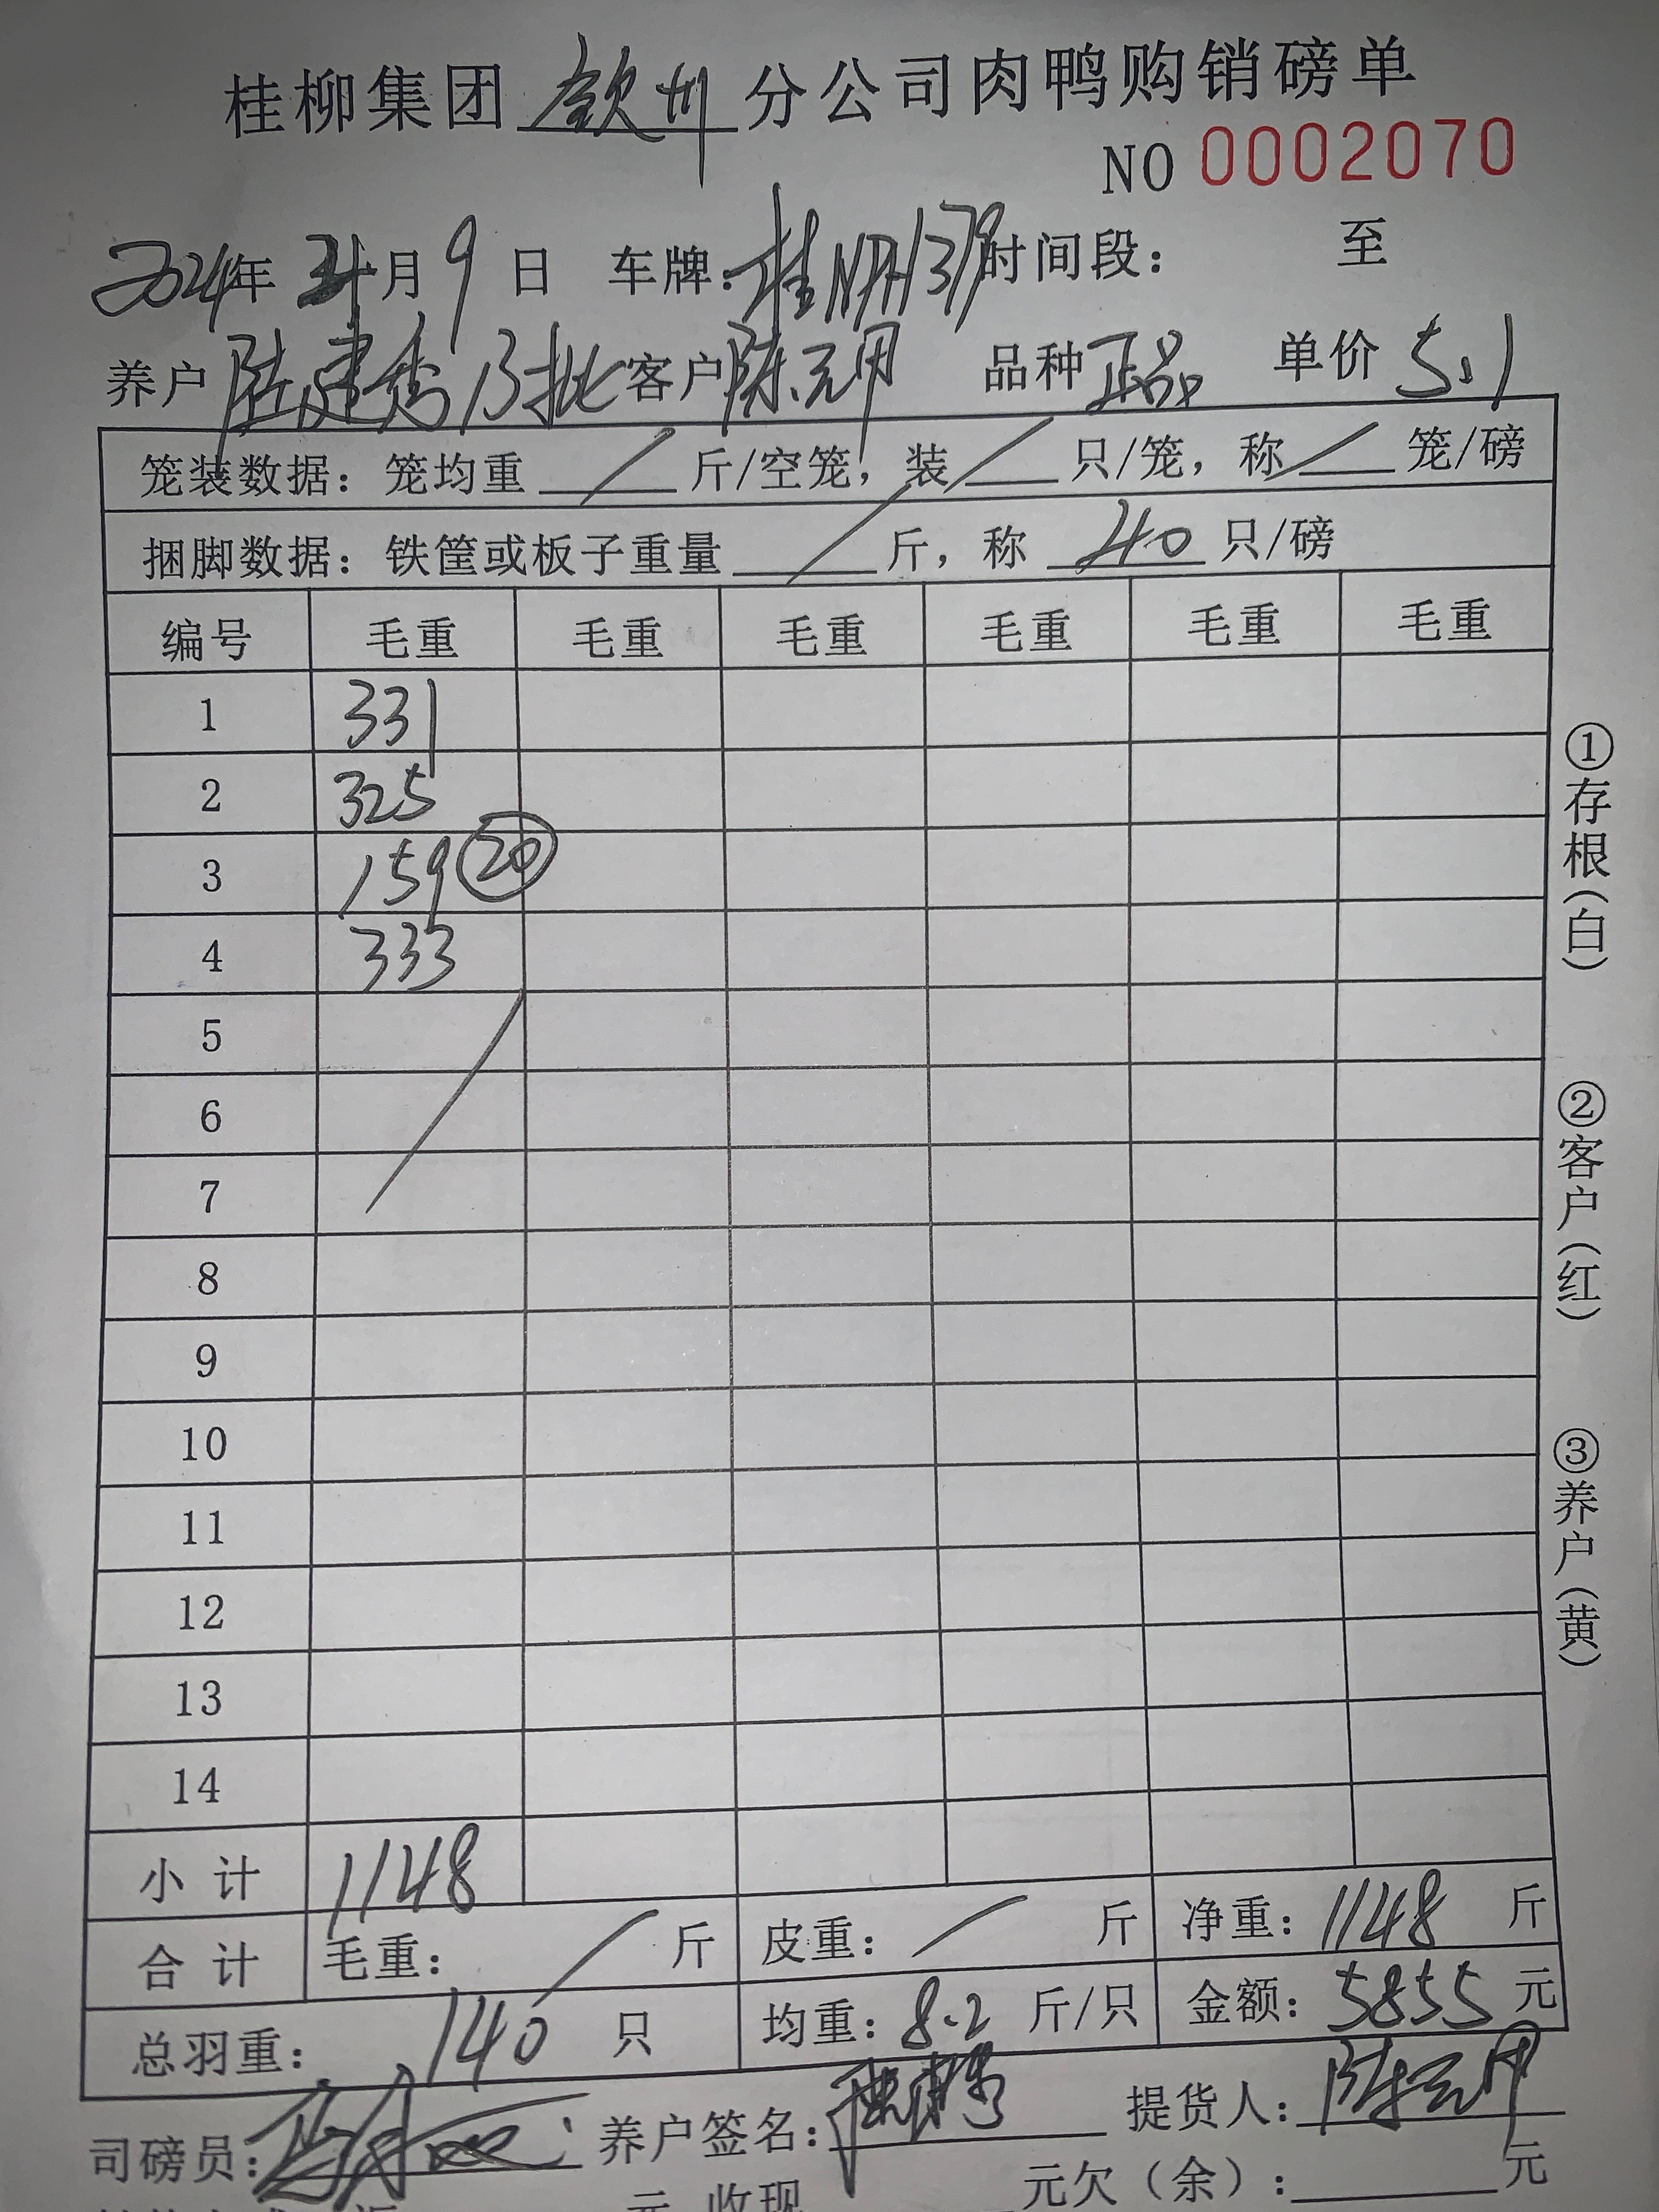 桂柳集团 钦州 分公司肉鸭购销磅单
NO 0002070
2024年 月 9 日 车牌: 桂NPH379 时间段: 至
养户 陆建秀 13批 客户 陈元甲 品种 正品 单价 5.1
笼装数据: 笼均重 / 斤/空笼, 装 / 只/笼, 称 / 笼/磅
捆脚数据: 铁筐或板子重量 / 斤, 称 40 只/磅
编号 毛重 毛重 毛重 毛重 毛重 毛重
1 331
2 325
3 159 ⑳
4 333
5
6
7
8
9
10
11
12
13
14
小计 1148
合计 毛重: / 斤 皮重: / 斤 净重: 1148 斤
总羽重: 140 只 均重: 8.2 斤/只 金额: 5855 元
司磅员: 养户签名: 陆建秀 提货人: 陈元甲
元 收现 元欠(余): 元
①存根(白)
②客户(红)
③养户(黄)